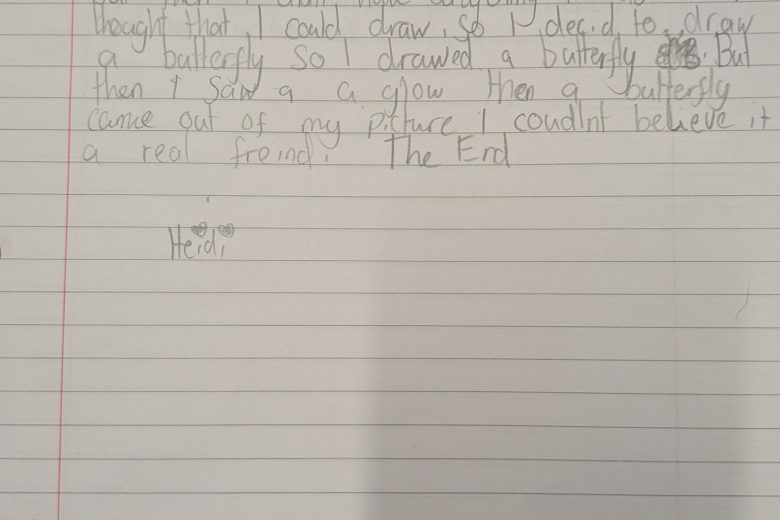 thought that I could draw, so I decid to draw
a butterfly so I drawed a butterfly. But
then I saw a a glow then a butterfly
came out of my picture I coudlnt believe it
a real freind. The End
Heidi